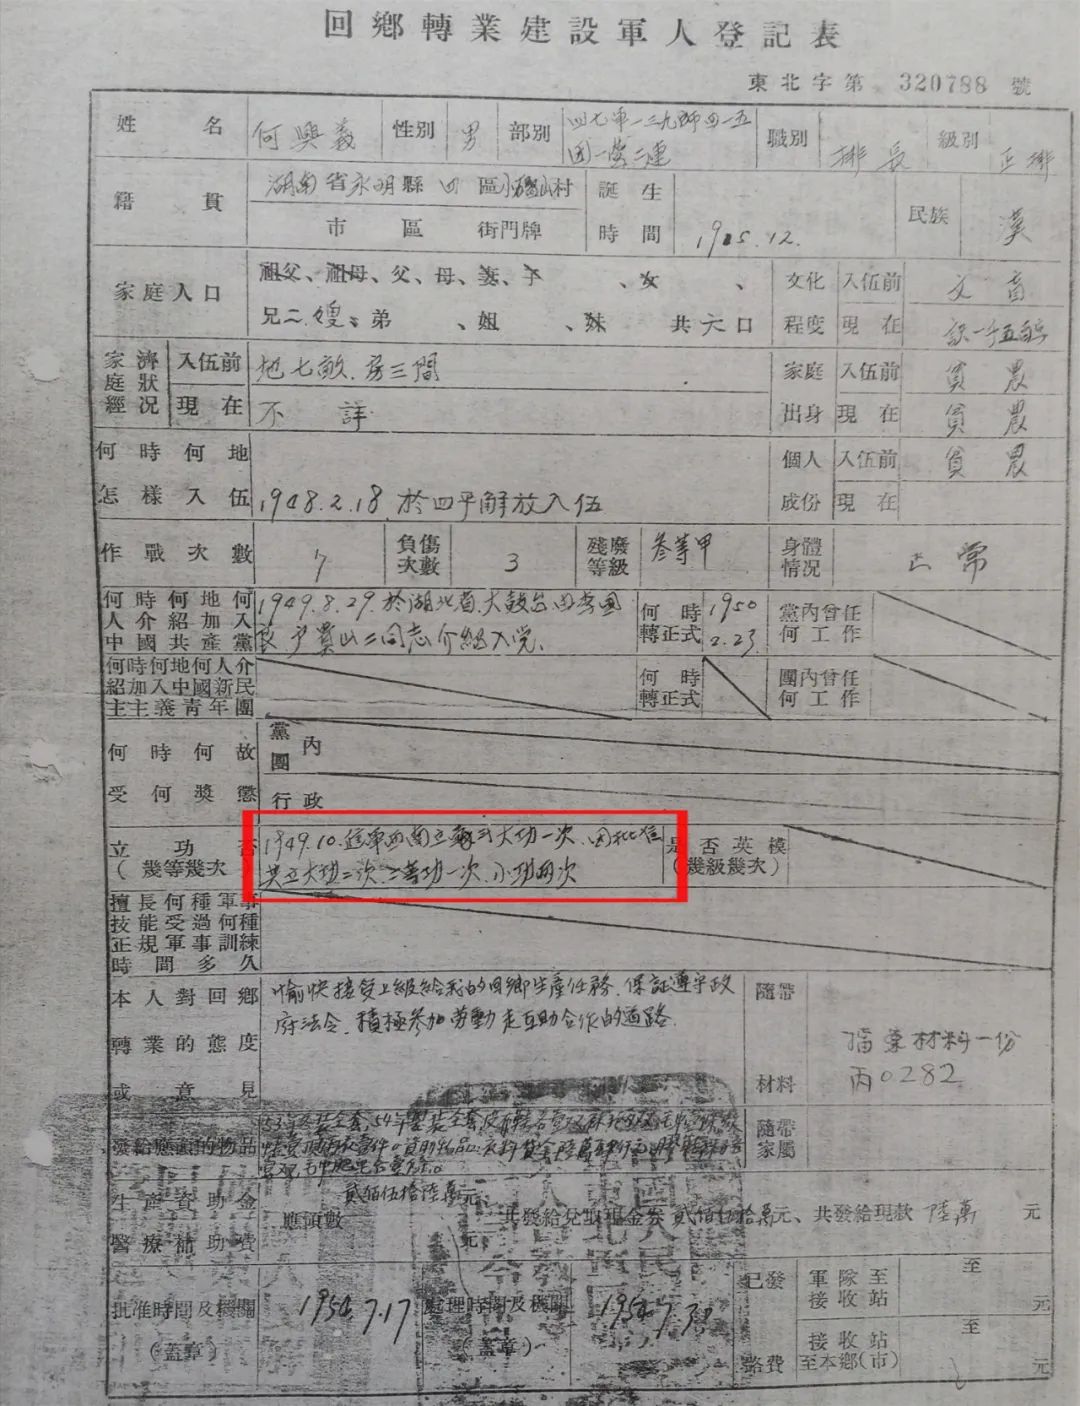 回鄉轉業建設軍人登記表
東北字第 320788 號
姓名 何興義 性別 男 部別 四七軍一三九師四一五
團一營二連 職別 排長 級別 正排
籍貫 湖南省永明縣 四 區 村
市 區 街門牌
誕生
時間 1925.12.
民族 漢
家庭人口 祖父、祖母、父、母、妻、子 、女 、
兄二、嫂、弟 、姐 、妹 共六口
文化 入伍前 文盲
程度 現在 識一千五百字
家庭經濟狀況 入伍前 地七畝.房三間
現在 不詳
家庭 入伍前 貧農
出身 現在 貧農
何時何地
怎樣入伍 1948.2.18.於四平解放入伍
個人 入伍前 貧農
成份 現在
作戰次數 7 負傷
次數 3 殘廢
等級 叁等甲 身體
情况 正常
何時何地何 1949.8.29.於湖北省
人介紹加入 二同志介紹入党.
中國共產黨
何時 1950
轉正式 2.23.
黨內曾任
何工作
何時何地何人介
紹加入中國新民
主主義青年團
何時
轉正式
團內曾任
何工作
何時何故
受何獎懲
黨
團 內
行政
立功否 1949.10.進軍西南立 大功一次.
(幾等幾次 共立大功二次.二等功一次.小功四次
是否英模
(幾級幾次)
擅長何種軍事
技能受過何種
正規軍事訓練
時間多久
本人對回鄉 愉快接受上級給我的回鄉生產任務.保証遵守政
轉業的態度 府法令.積極參加勞動走互助合作的道路.
或意見
隨帶
材料 檔案材料一份
丙0282
發給應
的物品
隨帶
家屬
生產資助金
醫療補助費
應領數 貳佰伍拾陸萬元
元
貳佰伍拾萬元、共發給現款 陸萬 元
批准時間及機關
(蓋章) 1954.7.17
處理時間及機關
(蓋章)
已發
路費
軍隊至
接收站 至 元
接收站
至本鄉(市) 至 元